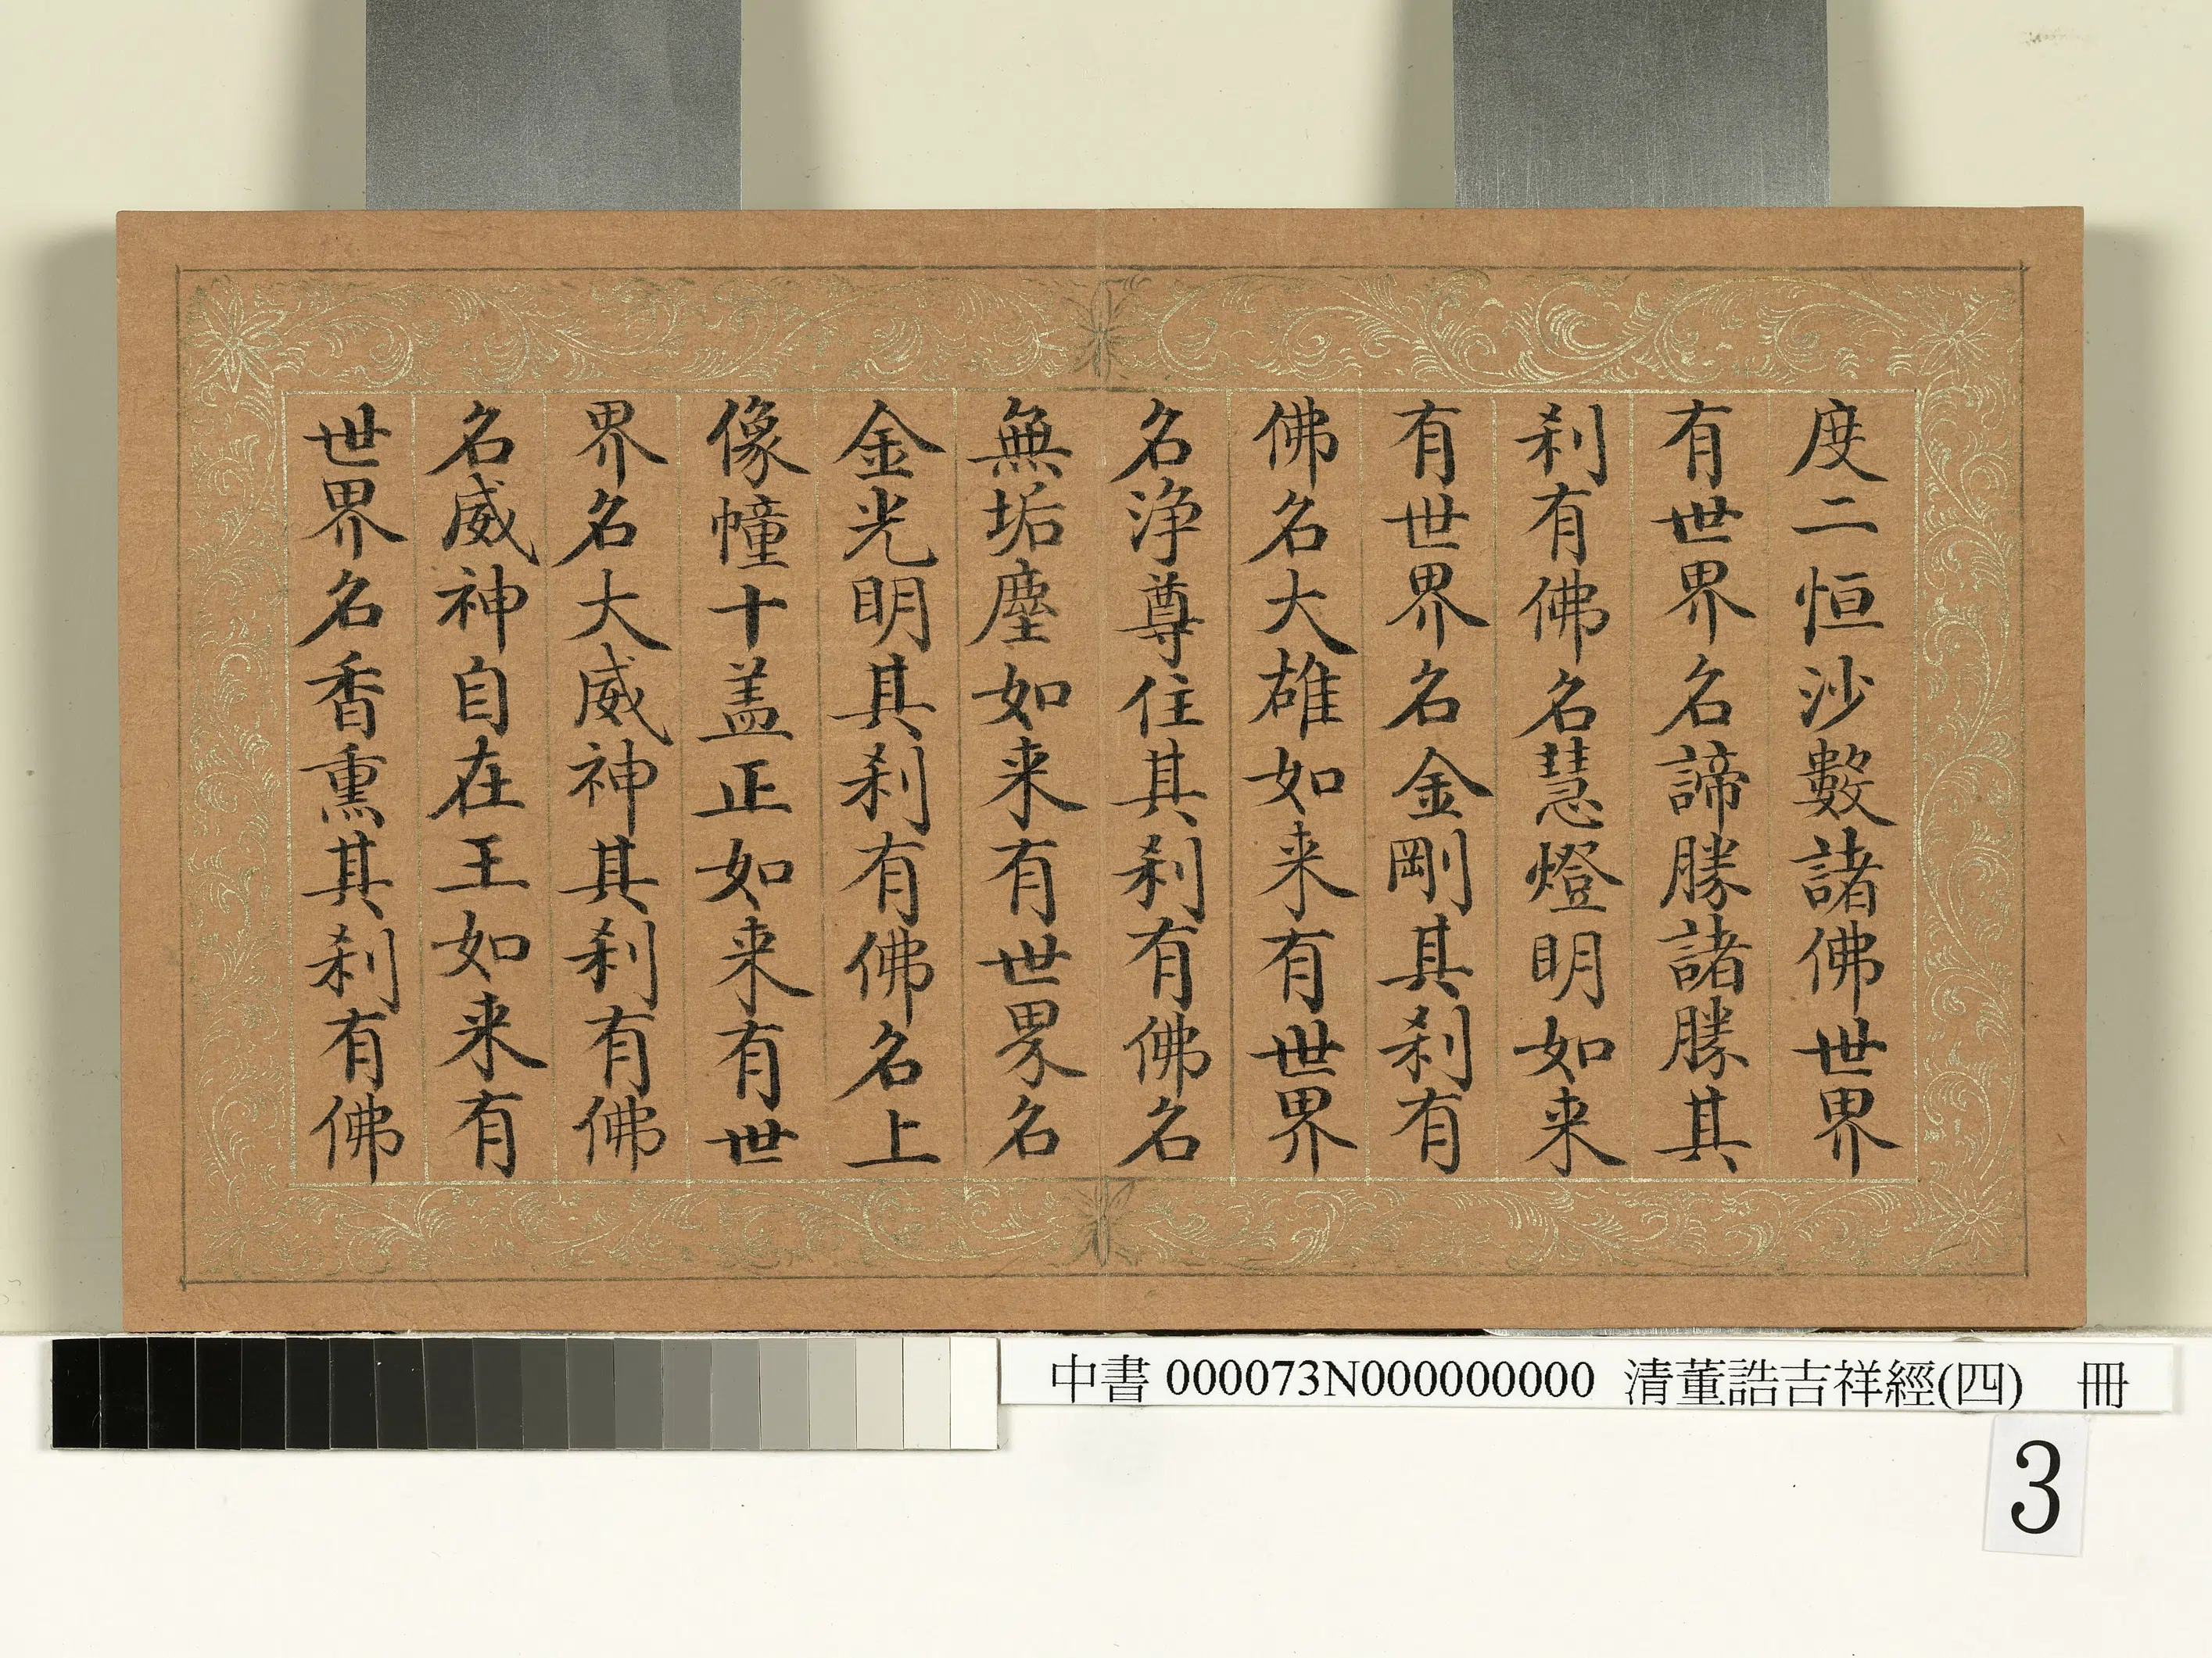 度二恒沙數諸佛世界
有世界名諦勝諸勝其
刹有佛名慧燈明如来
有世界名金剛其刹有
佛名大雄如来有世界
名淨尊住其刹有佛名
無垢塵如来有世界名
金光明其刹有佛名上
像幢十盖正如来有世
界名大威神其刹有佛
名威神自在王如来有
世界名香熏其刹有佛
中書 000073N000000000 清董誥吉祥經(四) 冊
3